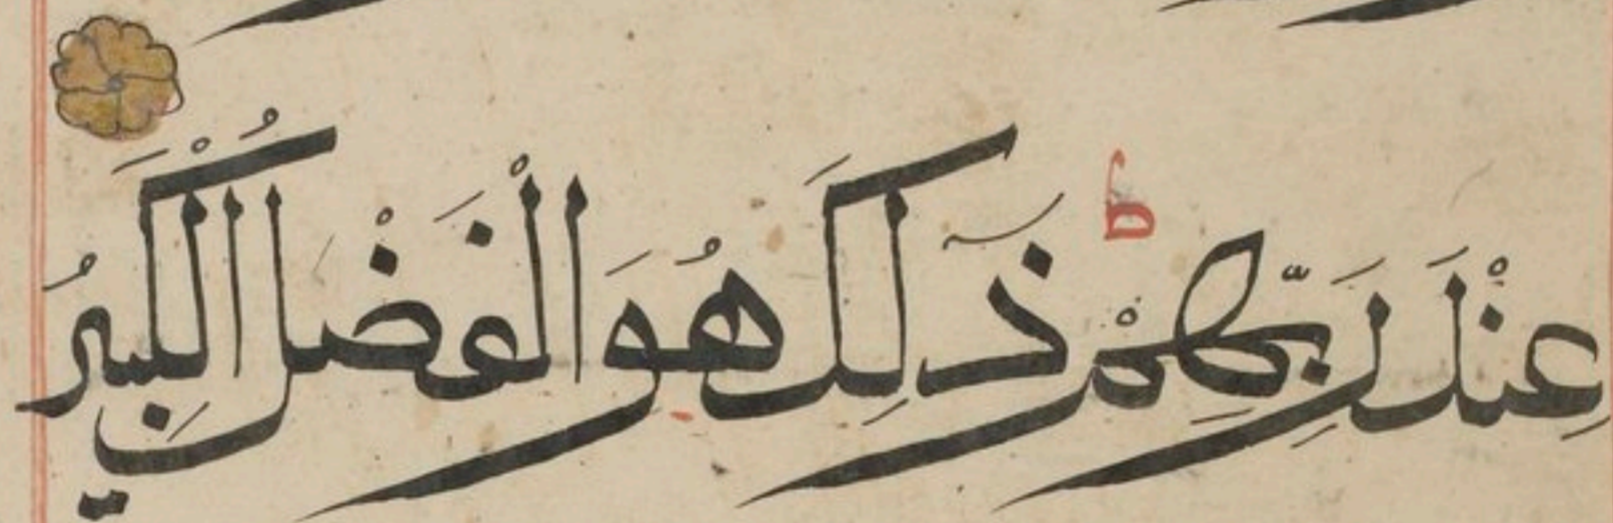 عِنْدَ رَبِّهِمْ ط ذَٰلِكَ هُوَ الْفَضْلُ الْكَبِيرُ